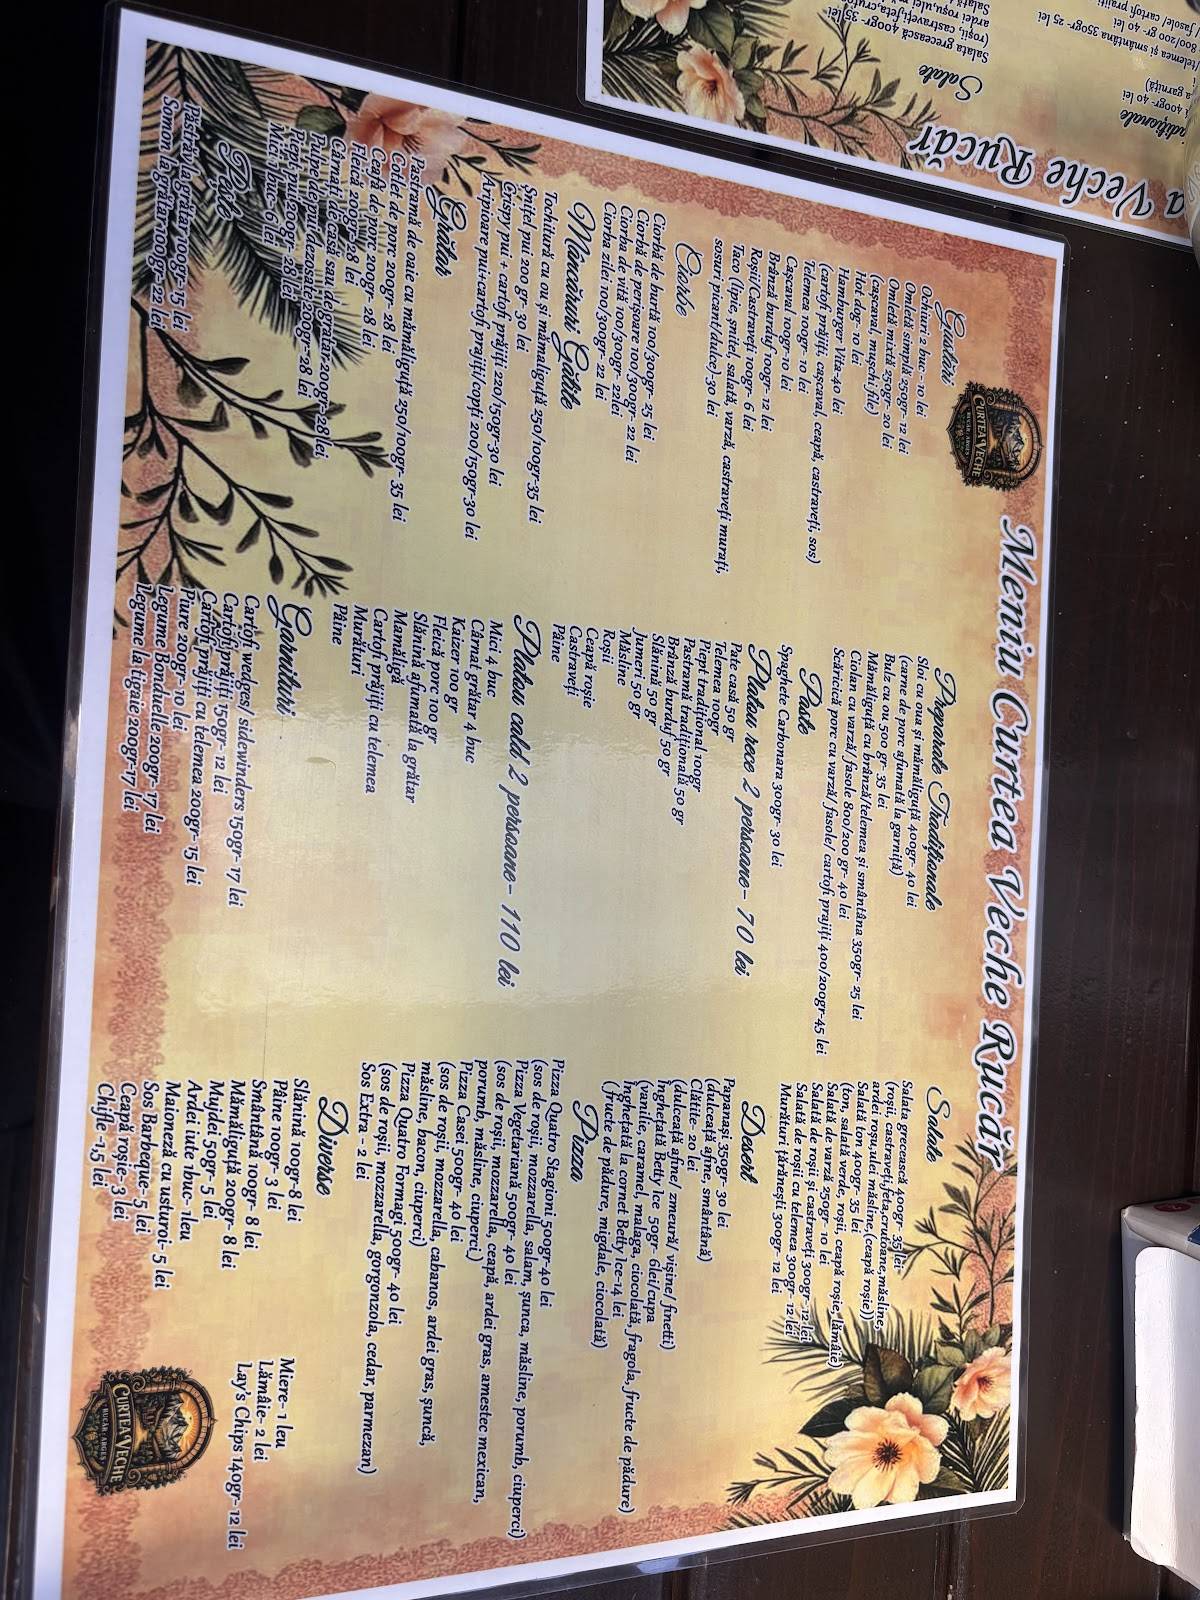 Meniu Curtea Veche Rucăr
CURTEA VECHE
RUCĂR, ARGEȘ
Gustări
Ochiuri 2 buc - 10 lei
Omletă simplă 250gr- 12 lei
Omletă mixtă 250gr- 20 lei
(cașcanal, mușchi file)
Hot dog- 10 lei
Hamburger Vita-40 lei
(cartofi prăjiți, cașcaval, ceapă, castraveți, sos)
Telemea 100gr- 10 lei
Cașcaval 100gr-10 lei
Brânză burduf 100gr- 12 lei
Roșii/Castraveți 100gr- 6 lei
Taco (lipie, șnitel, salată, varză, castraveți murați,
sosuri picant/dulce)-30 lei
Ciorbe
Ciorbă de burtă 100/300gr- 25 lei
Ciorbă de perișoare 100/300gr- 22 lei
Ciorba de vită 100/300gr- 22lei
Ciorba zilei 100/300gr- 22 lei
Mâncăruri Gătite
Tochitură cu ou și mămaliguță 250/100gr-35 lei
Șnițel pui 200 gr- 30 lei
Crispy pui + cartofi prăjiți 220/150gr-30 lei
Aripioare pui+cartofi prajiți/copți 200/150gr-30 lei
Grătar
Pastramă de oaie cu mămălguță 250/100gr- 35 lei
Cotlet de porc 200gr- 28 lei
Ceafă de porc 200gr- 28 lei
Fleică 200gr- 28 lei
Cârnăți de casă sau de grătar-200gr-28lei
Pulpe de pui dezosate 200gr-28 lei
Piept pui 200gr- 28 lei
Mici 1 buc- 6 lei
Pește
Pastrăv la grătar 100gr-15 lei
Somon la grătar-100gr-22 lei
Preparate Tradiționale
Sloi cu oua și mămăliguță 400gr- 40 lei
(carne de porc afumată la garniță)
Bulz cu ou 500 gr- 35 lei
Mămăliguță cu brânză/telemea și smântâna 350gr- 25 lei
Ciolan cu varză/ fasole 800/200 gr- 40 lei
Scăricică porc cu varză/ fasole/ cartofi prajiți 400/200gr-45 lei
Paste
Spaghete Carbonara 300gr- 30 lei
Platou rece 2 persoane- 70 lei
Pate casă 50 gr
Telemea 100gr
Piept tradițional 100gr
Pastramă tradițională 50 gr
Brânză burduf 50 gr
Slănină 50 gr
Jumeri 50 gr
Măsline
Roșii
Ceapă roșie
Castraveți
Pâine
Platou cald 2 persoane- 110 lei
Mici 4 buc
Cârnat grătar 4 buc
Kaizer 100 gr
Fleică porc 100 gr
Slănină afumată la grătar
Mamăligă
Cartofi prăjiți cu telemea
Murături
Pâine
Garnituri
Cartofi wedges/ sidewinders 150gr- 17 lei
Cartofi prăjiți 150gr- 12 lei
Cartofi prăjiți cu telemea 200gr-15 lei
Piure 200gr- 10 lei
Legume Bonduelle 200gr- 17 lei
Legume la tigaie 200gr-17 lei
Salate
Salata grecească 400gr- 35 lei
(roșii, castraveți,feta,crutoane,măsline,
ardei roșu,ulei măsline,(ceapă roșie))
Salată ton 400gr- 35 lei
(ton, salată verde, roșii, ceapă roșie, lămâie)
Salată de varză 250gr- 10 lei
Salată de roșii și castraveți 300gr- 12 lei
Salată de roșii cu telemea 300gr- 12 lei
Murături țărănești 300gr- 12 lei
Desert
Papanași 350gr- 30 lei
(dulceață afine, smântână)
Clătite- 20 lei
(dulceață afine/ zmeură/ vișine/ finetti)
Înghețată Betty Ice 50gr- 6lei/cupa
(vanilie, caramel, malaga, ciocolată, fragola, fructe de pădure)
Înghețată la cornet Betty Ice-14 lei
( fructe de pădure, migdale, ciocolată)
Pizza
Pizza Quatro Stagioni 500gr-40 lei
(sos de roșii, mozzarella, salam, șunca, măsline, porumb, ciuperci)
Pizza Vegetariană 500gr- 40 lei
(sos de roșii, mozzarella, ceapă, ardei gras, amestec mexican,
porumb, măsline, ciuperci)
Pizza Casei 500gr- 40 lei
(sos de roșii, mozzarella, cabanos, ardei gras, șuncă,
măsline, bacon, ciuperci)
Pizza Quatro Formagi 500gr- 40 lei
(sos de roșii, mozzarella, gorgonzola, cedar, parmezan)
Sos Extra - 2 lei
Diverse
Slănină 100gr-8 lei
Pâine 100gr- 3 lei
Smântână 100gr- 8 lei
Mămăliguță 200gr- 8 lei
Mujdei 50gr- 5 lei
Ardei iute 1buc- 1leu
Maioneză cu usturoi- 5 lei
Sos Barbeque- 5 lei
Ceapă roșie- 3 lei
Chifle -1,5 lei
Miere- 1 leu
Lămâie- 2 lei
Lay's Chips 140gr-12 lei
CURTEA VECHE
RUCĂR, ARGEȘ
a Veche Rucăr
adiționale
400gr- 40 lei
a garniță)
i
/telemea și smântâna 350gr- 25 lei
800/200 gr- 40 lei
/ fasole/ cartofi prajiți
Salate
Salata grecească 400gr- 35 lei
(roșii, castraveți,feta,crutoa
ardei roșu,ulei m
Salată